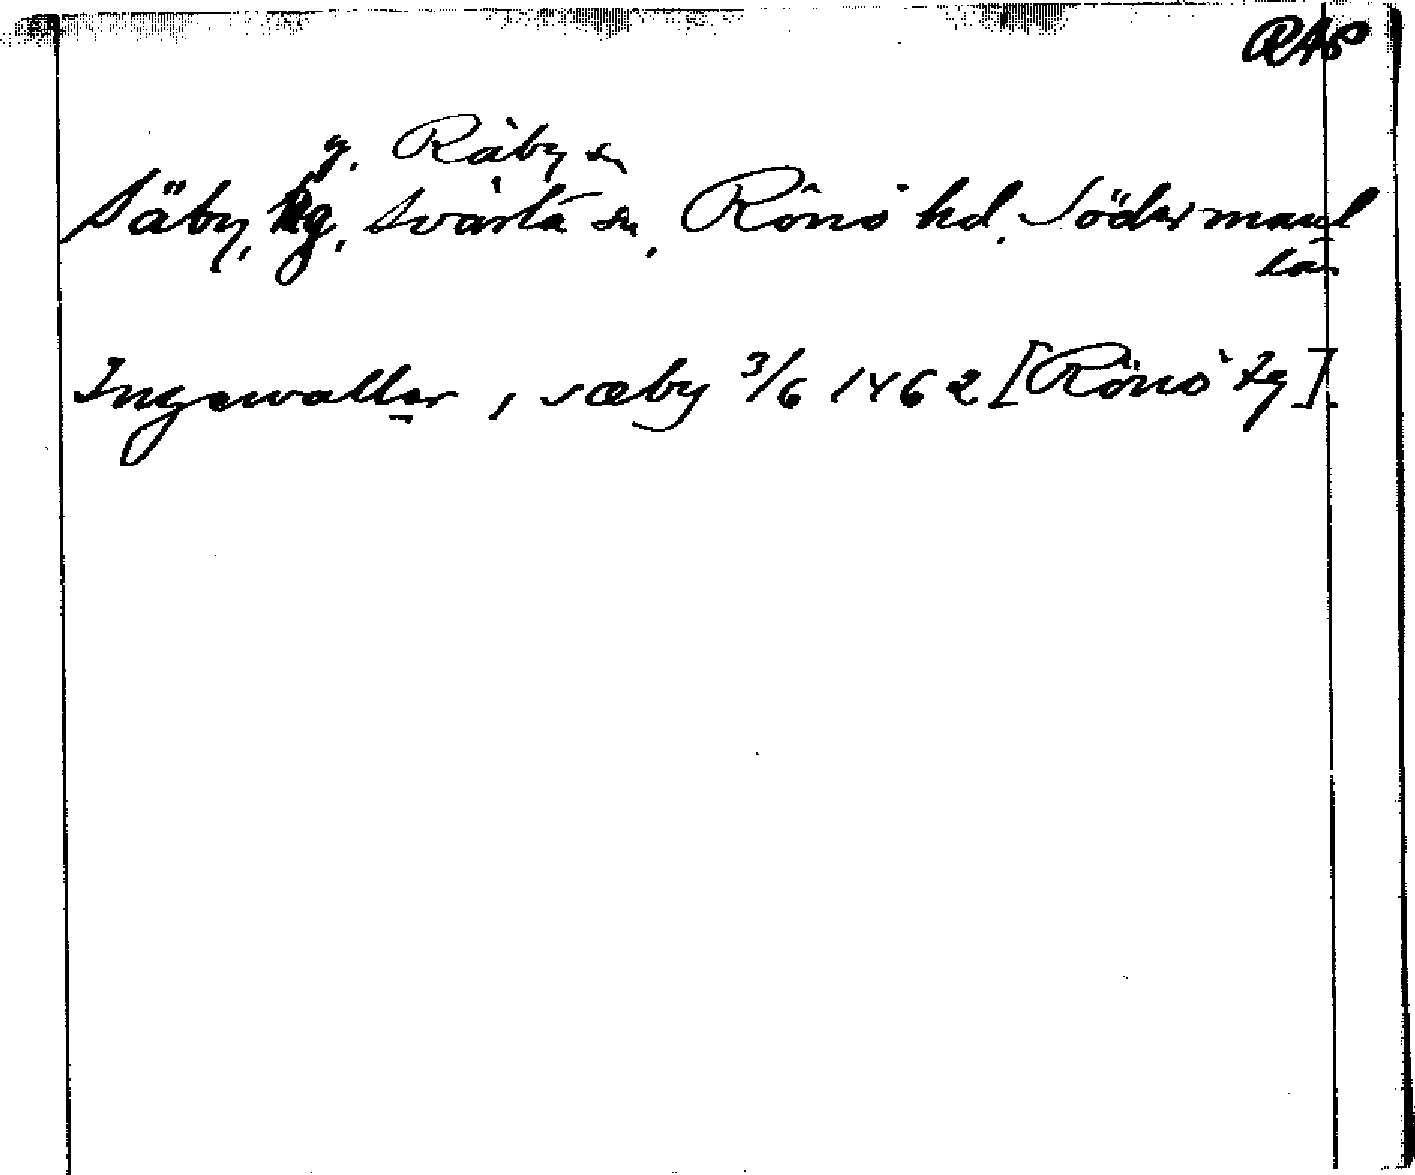 RAP
g. Råby sn
Säby, hg, Svärta sn, Rönö hd. Södermanl
län
Ingewaller, i sæby 3/6 1462 [Rönö tg].